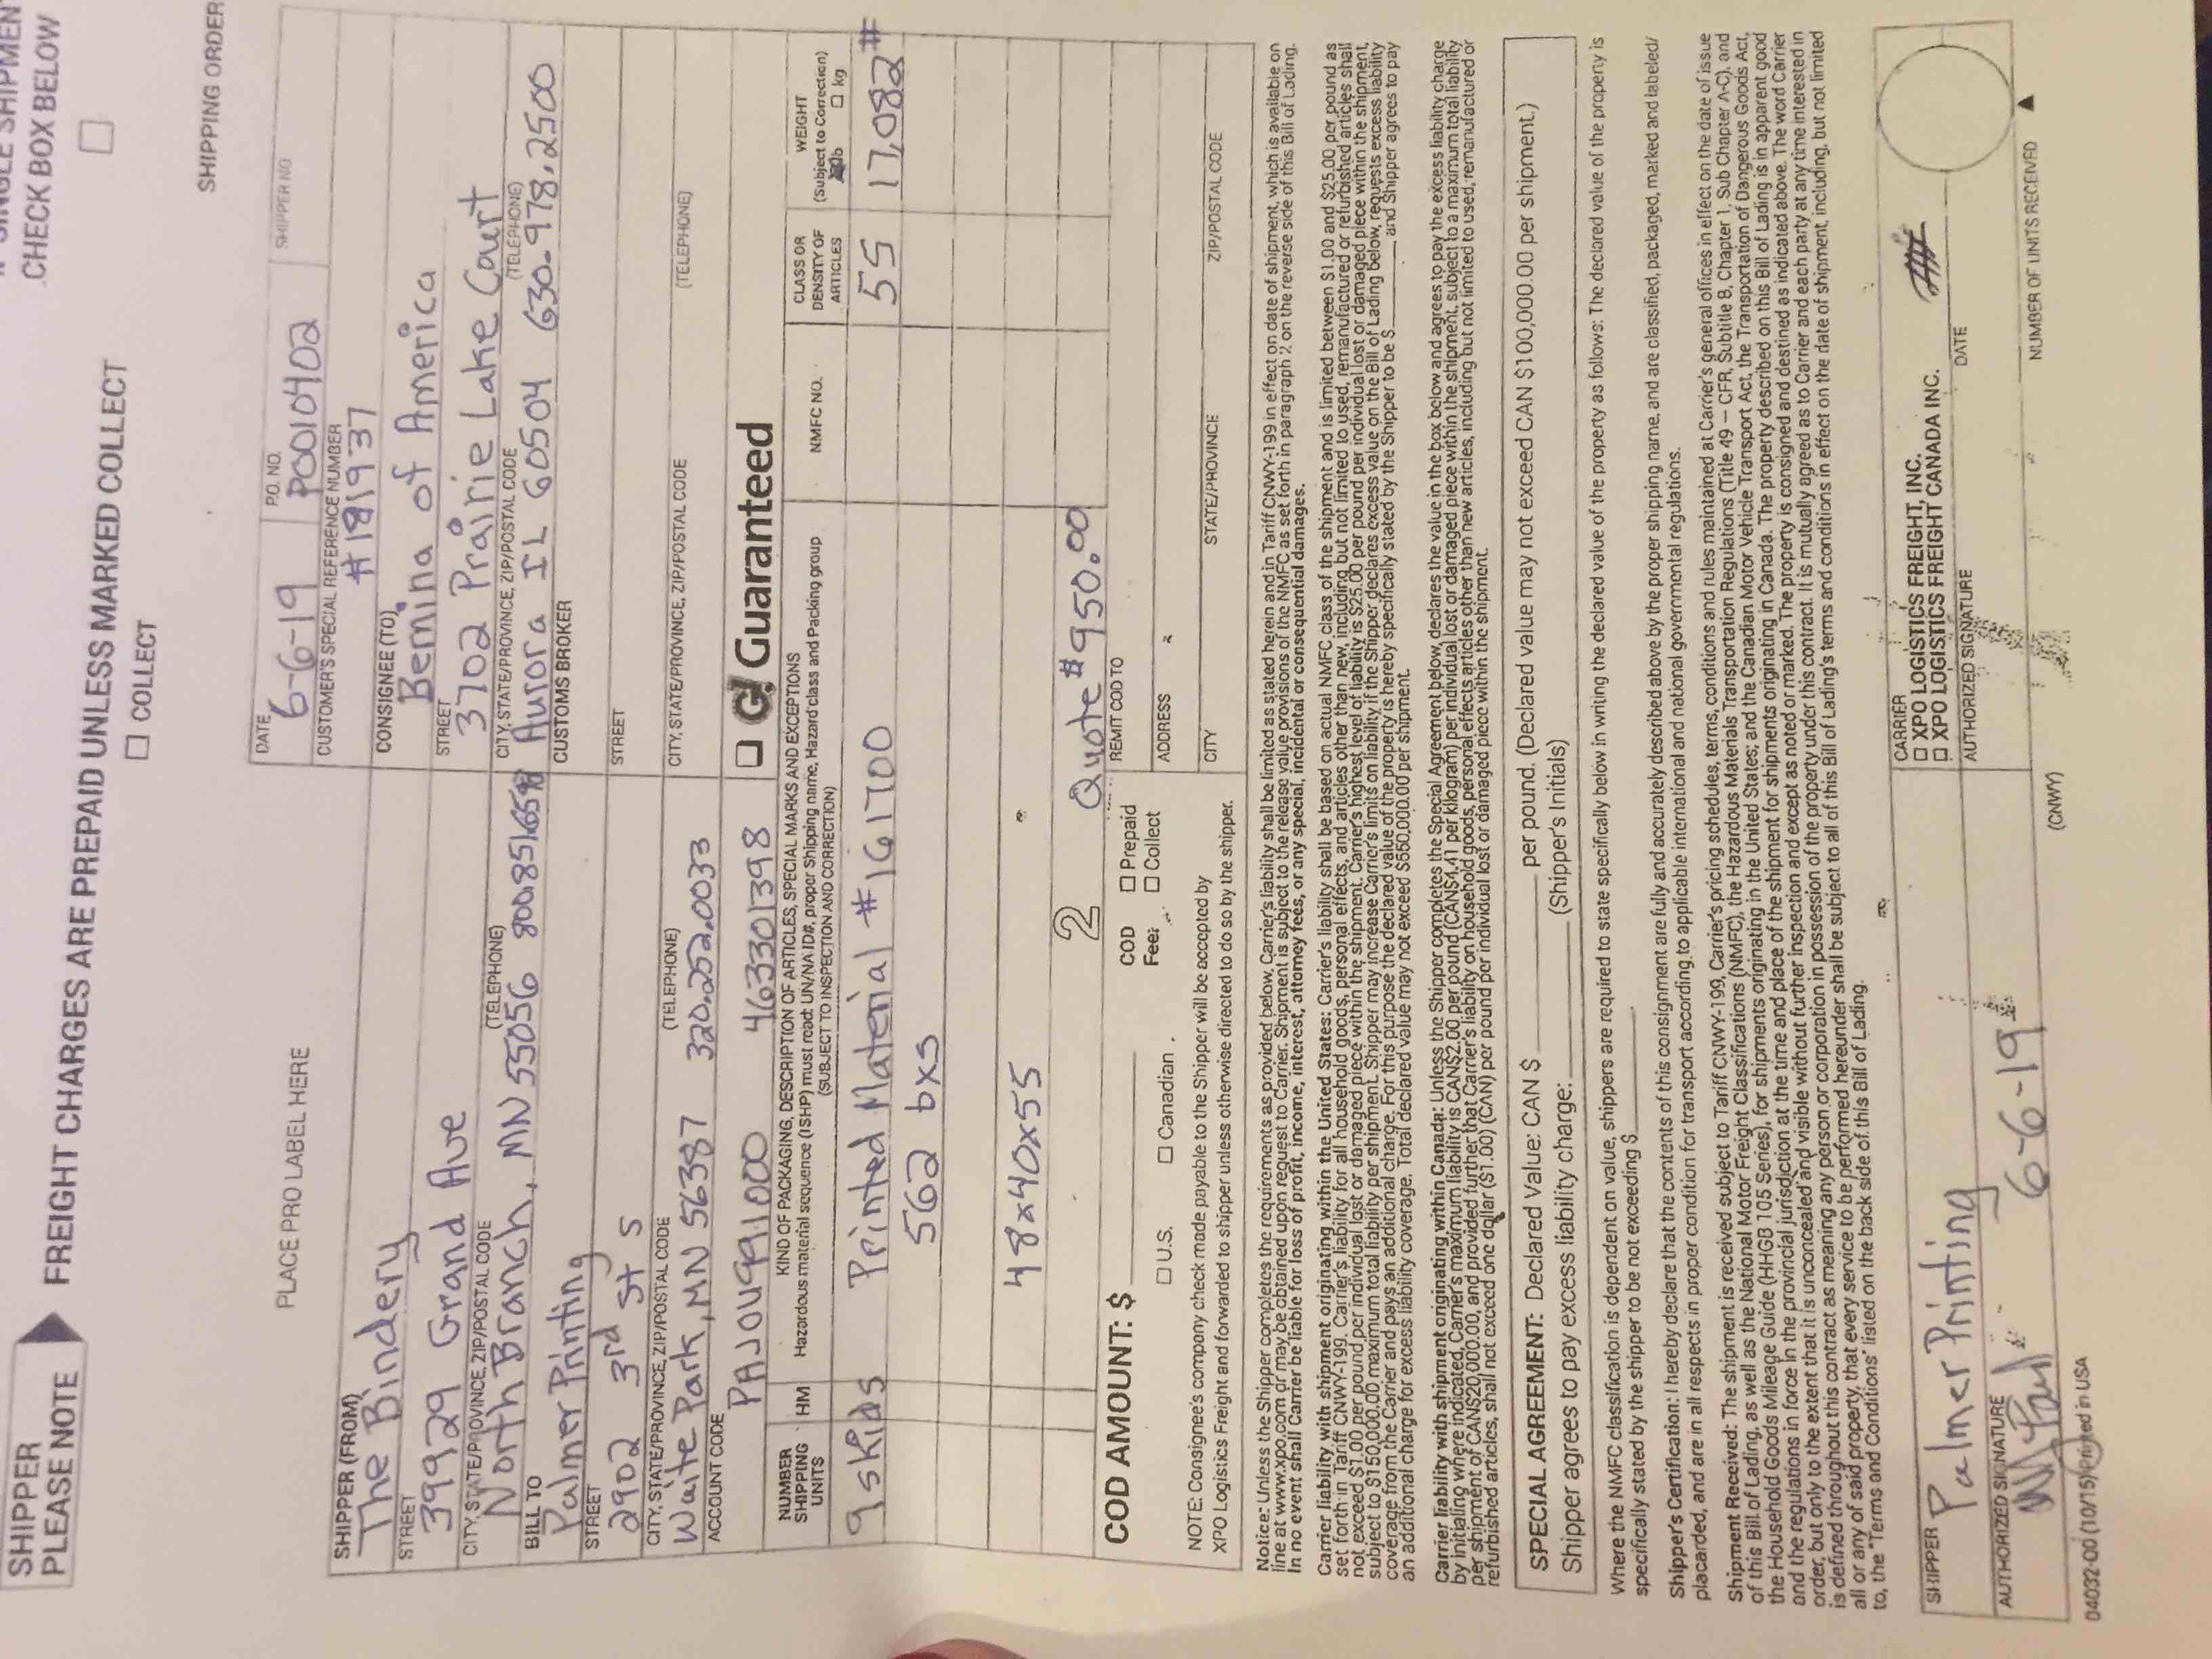 SHIPPER
PLEASE NOTE
FREIGHT CHARGES ARE PREPAID UNLESS MARKED COLLECT
☐ COLLECT
CHECK BOX BELOW
☐
SHIPPING ORDER
PLACE PRO LABEL HERE
DATE
6-6-19
P.O. NO.
P0010402
SHIPPER NO
CUSTOMER'S SPECIAL REFERENCE NUMBER
#181937
SHIPPER (FROM)
The Bindery
STREET
39929 Grand Ave
CITY, STATE/PROVINCE, ZIP/POSTAL CODE
(TELEPHONE)
North Branch, MN 55056
CONSIGNEE (TO)
Bernina of America
STREET
3702 Prairie Lake Court
CITY, STATE/PROVINCE, ZIP/POSTAL CODE
(TELEPHONE)
Aurora IL 60504 630-978.2500
BILL TO
Palmer Printing
STREET
2902 3rd St S
CITY, STATE/PROVINCE, ZIP/POSTAL CODE
(TELEPHONE)
Waite Park, MN 56387 320.252.0033
ACCOUNT CODE
PAJOU991000 4633301398
CUSTOMS BROKER
STREET
CITY, STATE/PROVINCE, ZIP/POSTAL CODE
(TELEPHONE)
☐ G! Guaranteed
NUMBER
SHIPPING
UNITS
HM
KIND OF PACKAGING, DESCRIPTION OF ARTICLES, SPECIAL MARKS AND EXCEPTIONS
Hazardous material sequence (ISHP) must read: UN/NA ID#, proper Shipping name, Hazard class and Packing group
(SUBJECT TO INSPECTION AND CORRECTION)
NMFC NO.
CLASS OR
DENSITY OF
ARTICLES
WEIGHT
(Subject to Correction)
lb ☐ kg
9 skids Printed Material #161700 55 17,082#
562 bxs
48x40x55
2 Quote #950.00
COD AMOUNT: $
☐ U.S. ☐ Canadian
COD
Fee:
☐ Prepaid
☐ Collect
REMIT COD TO
ADDRESS
CITY
STATE/PROVINCE
ZIP/POSTAL CODE
NOTE: Consignee's company check made payable to the Shipper will be accepted by
XPO Logistics Freight and forwarded to shipper unless otherwise directed to do so by the shipper.
Notice: Unless the Shipper completes the requirements as provided below, Carrier's liability shall be limited as stated herein and in Tariff CNWY-199 in effect on date of shipment, which is available on
line at www.xpo.com or may be obtained upon request to Carrier. Shipment is subject to the release value provisions of the NMFC as set forth in paragraph 2 on the reverse side of this Bill of Lading.
In no event shall Carrier be liable for loss of profit, income, interest, attorney fees, or any special, incidental or consequential damages.
Carrier liability with shipment originating within the United States: Carrier's liability shall be based on actual NMFC class of the shipment and is limited between $1.00 and $25.00 per pound as
set forth in Tariff CNWY-199. Carrier's liability for all household goods, personal effects, and articles other than new, including but not limited to used, remanufactured or refurbished articles shall
not exceed $1.00 per pound per individual lost or damaged piece within the shipment. Carrier's highest level of liability is $25.00 per pound per individual lost or damaged piece within the shipment,
subject to $150,000.00 maximum total liability per shipment. Shipper may increase Carrier's limits on liability if the Shipper declares excess value on the Bill of Lading below, requests excess liability
coverage from the Carrier and pays an additional charge. For this purpose the declared value of the property is hereby specifically stated by the Shipper to be $ and Shipper agrees to pay
an additional charge for excess liability coverage. Total declared value may not exceed $650,000.00 per shipment.
Carrier liability with shipment originating within Canada: Unless the Shipper completes the Special Agreement below, declares the value in the box below and agrees to pay the excess liability charge
by initialing where indicated, Carrier's maximum liability is CAN$2.00 per pound (CAN$4.41 per kilogram) per individual lost or damaged piece within the shipment, subject to a maximum total liability
per shipment of CAN$20,000.00, and provided further that Carrier's liability on household goods, personal effects articles other than new articles, including but not limited to used, remanufactured or
refurbished articles, shall not exceed one dollar ($1.00) (CAN) per pound per individual lost or damaged piece within the shipment.
SPECIAL AGREEMENT: Declared Value: CAN $ per pound. (Declared value may not exceed CAN $100,000.00 per shipment.)
Shipper agrees to pay excess liability charge: (Shipper's Initials)
Where the NMFC classification is dependent on value, shippers are required to state specifically below in writing the declared value of the property as follows: The declared value of the property is
specifically stated by the shipper to be not exceeding $
Shipper's Certification: I hereby declare that the contents of this consignment are fully and accurately described above by the proper shipping name, and are classified, packaged, marked and labeled/
placarded, and are in all respects in proper condition for transport according to applicable international and national governmental regulations.
Shipment Received: The shipment is received subject to Tariff CNWY-199, Carrier's pricing schedules, terms, conditions and rules maintained at Carrier's general offices in effect on the date of issue
of this Bill of Lading, as well as the National Motor Freight Classifications (NMFC), the Hazardous Materials Transportation Regulations (Title 49 – CFR, Subtitle B, Chapter 1, Sub Chapter A-C), and
the Household Goods Mileage Guide (HHGB 105 Series), for shipments originating in the United States; and the Canadian Motor Vehicle Transport Act, the Transportation of Dangerous Goods Act,
and the regulations in force in the provincial jurisdiction at the time and place of the shipment for shipments originating in Canada. The property described on this Bill of Lading is in apparent good
order, but only to the extent that it is unconcealed and visible without further inspection and except as noted or marked. The property is consigned and destined as indicated above. The word Carrier
is defined throughout this contract as meaning any person or corporation in possession of the property under this contract. It is mutually agreed as to Carrier and each party at any time interested in
all or any of said property, that every service to be performed hereunder shall be subject to all of this Bill of Lading's terms and conditions in effect on the date of shipment, including, but not limited
to, the "Terms and Conditions" listed on the back side of this Bill of Lading.
SHIPPER
Palmer Printing
AUTHORIZED SIGNATURE
6-6-19
CARRIER
☐ XPO LOGISTICS FREIGHT, INC.
☐ XPO LOGISTICS FREIGHT CANADA INC.
AUTHORIZED SIGNATURE
DATE
NUMBER OF UNITS RECEIVED
04032-00 (10/15) Printed in USA
(CNWY)